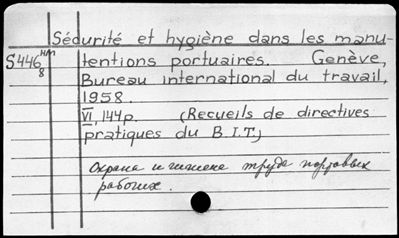 Sécurité et hygiène dans les manu-
S446 нт tentions portuaires. Genève,
8 Bureau international du travail,
1958.
VI, 144p. (Recueils de directives
pratiques du B.I.T.)
Охрана и гигиена труда портовых
рабочих.